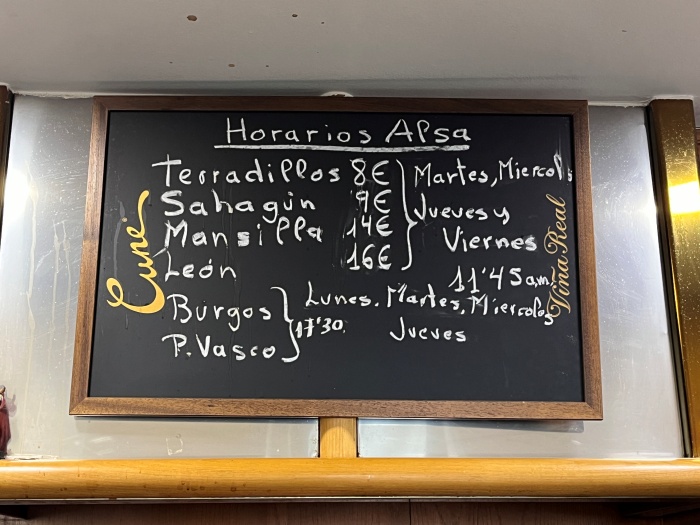 Horarios Alsa
Terradillos 8€ Martes, Miercols
Sahagún 9€ Jueves y
Mansilla 14€ Viernes
León 16€ 11'45 a.m.
Burgos Lunes. Martes, Miercolos
17'30
P. Vasco Jueves
Cune
Viña Real